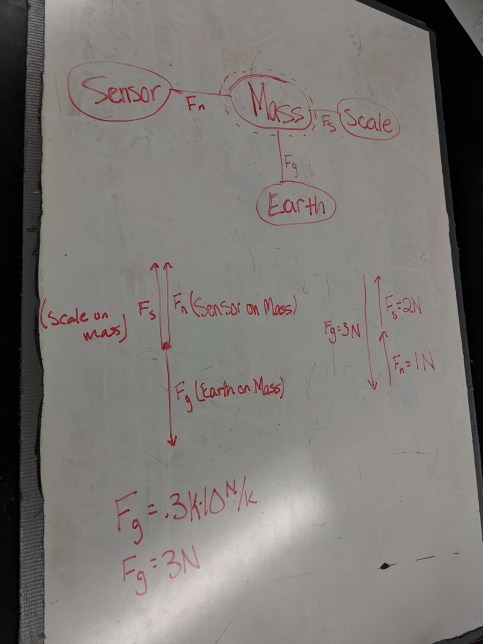 Sensor
Fn
Mass
Fs
Scale
Fg
Earth
(Scale on
mass)
Fs
Fn (Sensor on Mass)
Fg (Earth on Mass)
Fg=3N
Fs=2N
Fn=1N
Fg=.3K·10N/k
Fg=3N